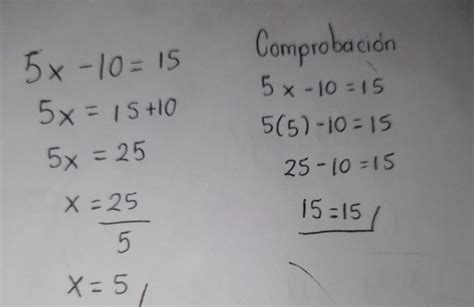 5x - 10 = 15
5x = 15 + 10
5x = 25
x = 25
5
x = 5
Comprobación
5x - 10 = 15
5(5) - 10 = 15
25 - 10 = 15
15 = 15